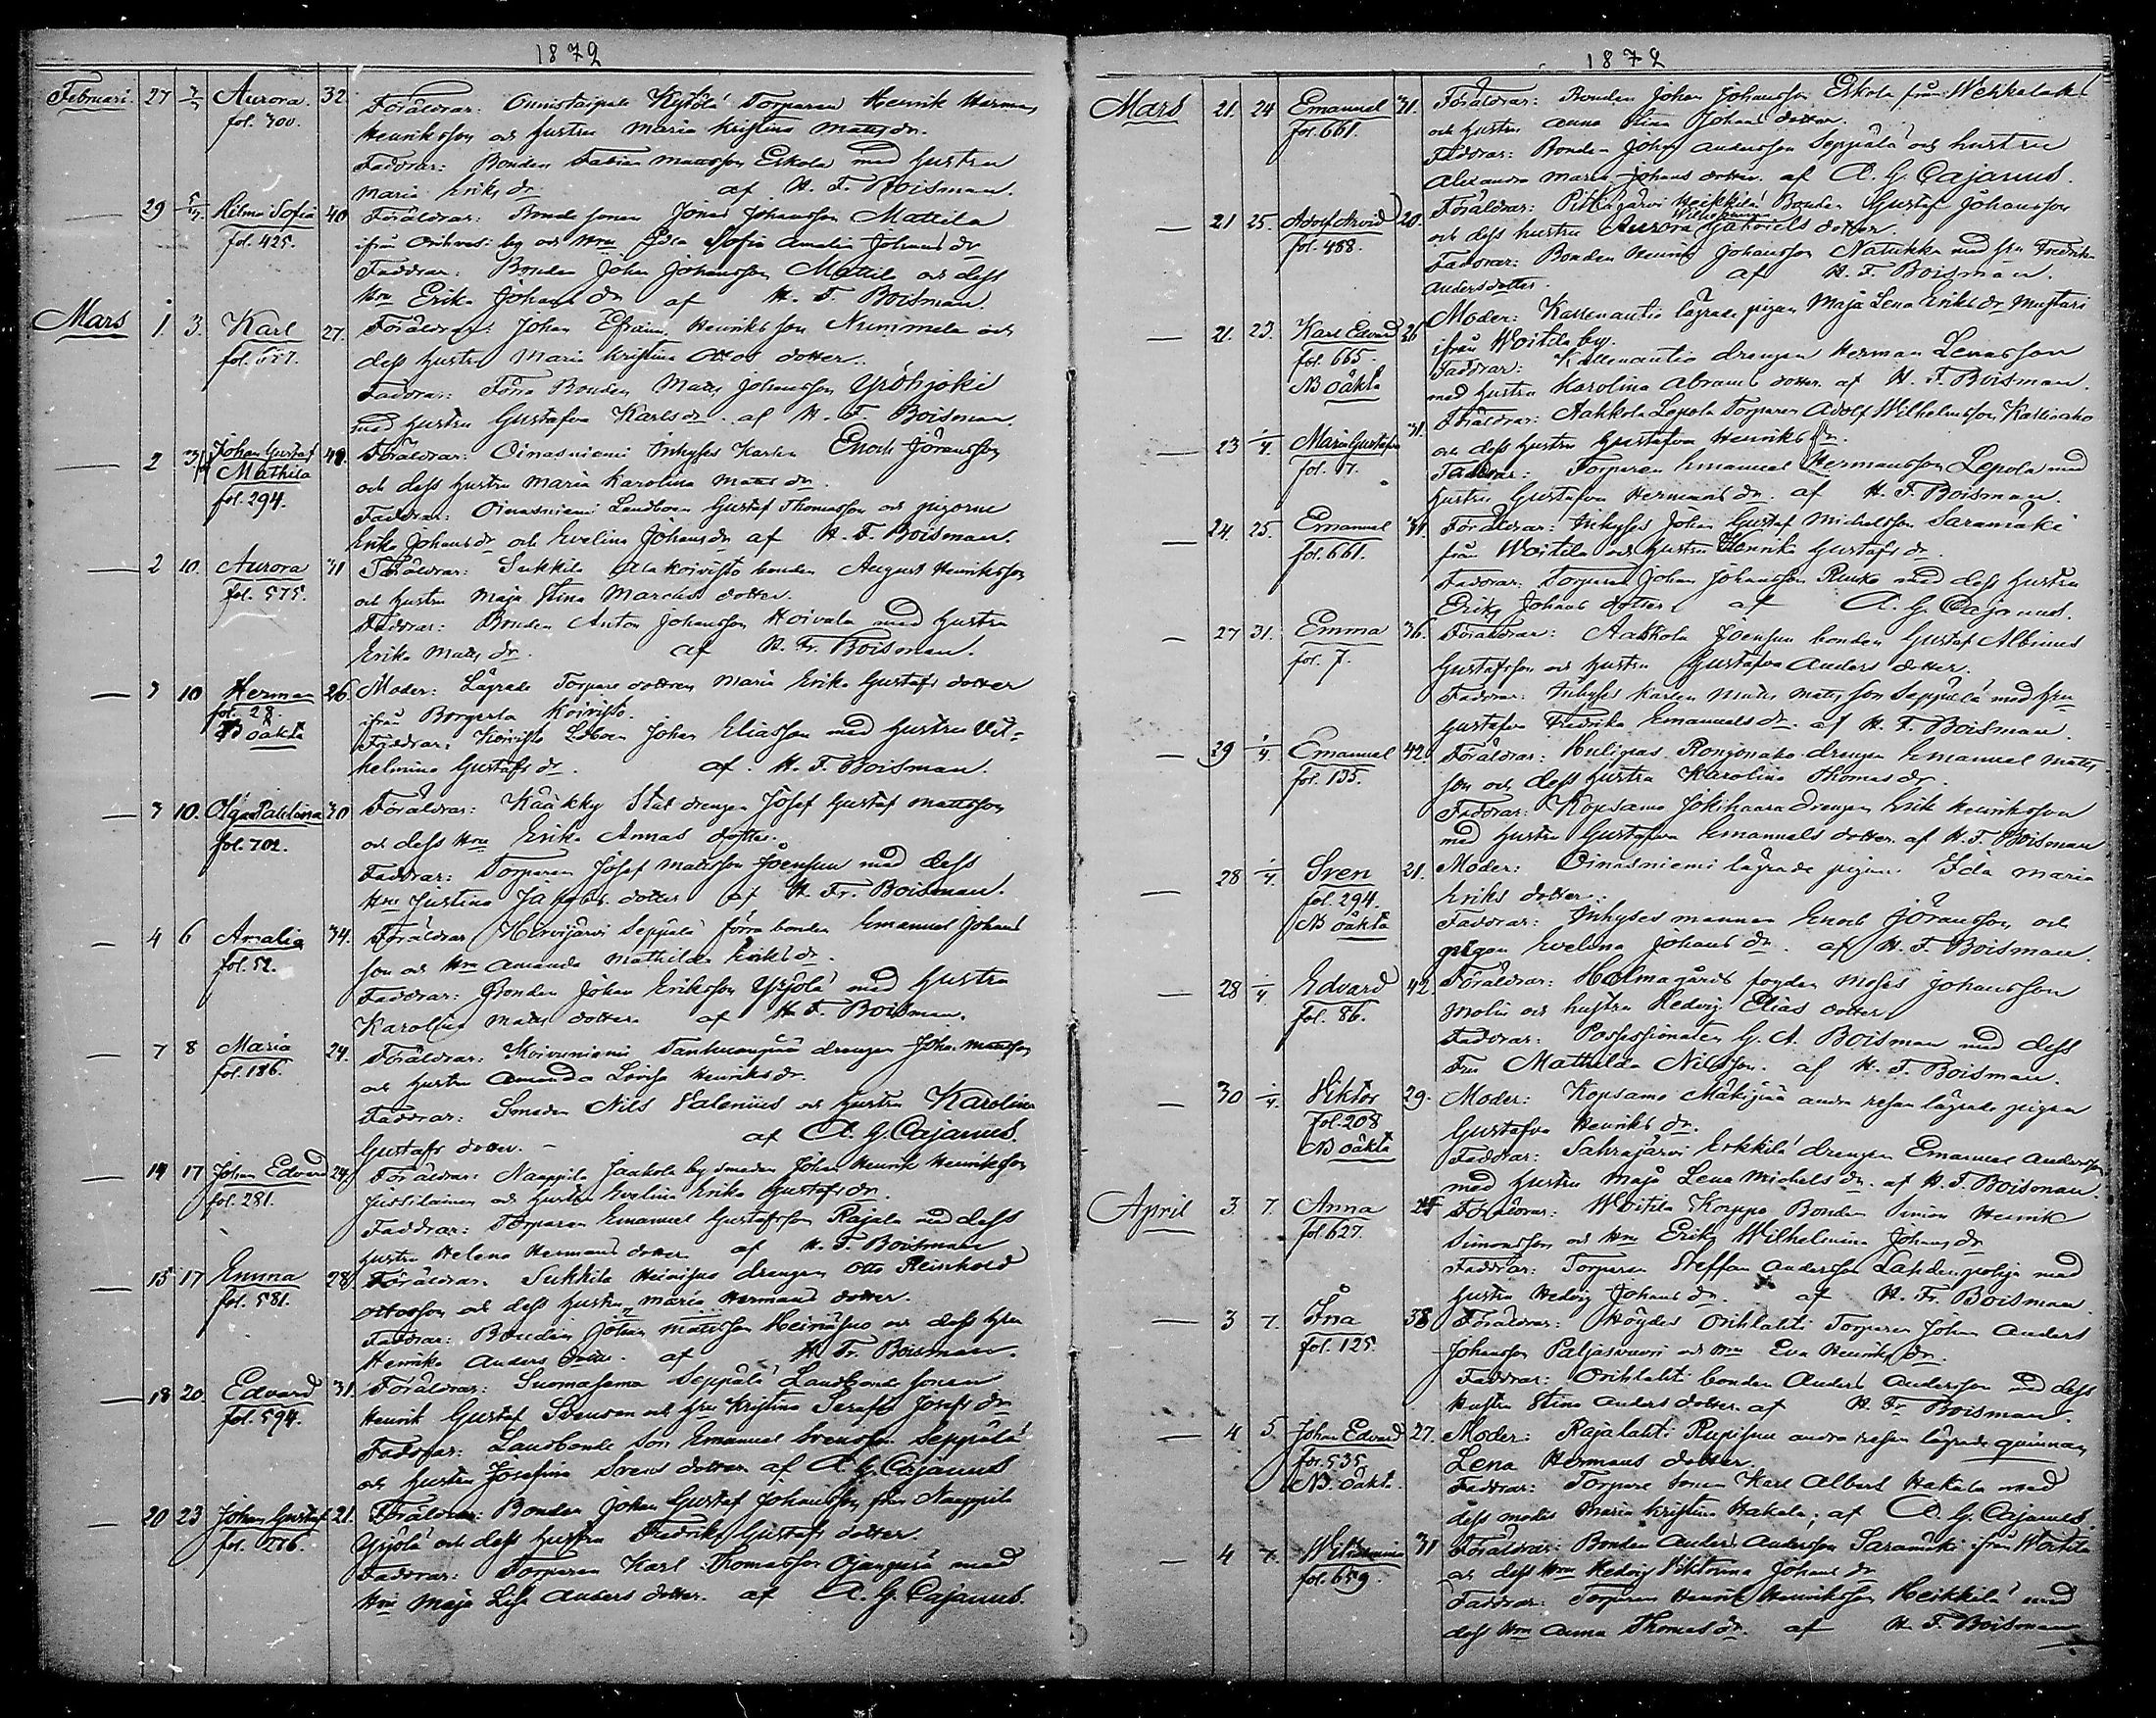 1872
Februari. 27 3/3 Aurora. 32 Föräldrar: Onnistaipale Kylölä Torparen Henrik Herman
fol. 300. Henriksson och hustru Maria Kristina Matts dr.
Faddrar: Bonden Fabian Mattsson Eskola med hustru
Maria Eriks dr. af H. F. Boisman.
— 29 Hilma Sofia 40 Föräldrar: Bonde sonen Jonas Johansson Mattila
fol. 425. ifrån Orihvesi by och Hru Ida Sofia Amalia Johans dr
Faddrar: Bonden Johan Johansson Mattila och dess
Hru Erika Johans dr af H. F. Boisman.
Mars 1. 3. Karl 27. Föräldrar: Johan Efraim Henriksson Nummela och
fol. 657. dess hustru Maria Kristina Ottos dotter.
Faddrar: Förra Bonden Matts Johansson Yröhjoki
med hustru Gustafva Karls dr. af H. F. Boisman.
— 2 3/3 Johan Gustaf 41. Föräldrar: Oinasniemi Inhyses Karlen Enoch Jöransson
Mathila och dess hustru Maria Karolina Matts dr.
fol. 294. Faddrar: Oinasniemi Landbon Gustaf Thomasson och pigorne
Erika Johans dr och Evelina Johans dr af H. F. Boisman.
— 2 10. Aurora 31 Föräldrar: Sukkila Alakoivisto bonden August Henriksson
fol. 575. och hustru Maja Stina Marcus dotter.
Faddrar: Bonden Anton Johansson Hoivala med hustru
Erika Matts dr. af H. Fr. Boisman.
— 3 10 Herman 26 Moder: Lägrade Torpare dottren Maria Erika Gustafs dotter
fol. 28. ifrån Borgerla Koivisto.
NB oäkta Faddrar: Koivisto Lboen Johan Eliasson med hustru Vil-
helmina Gustafs dr. af H. F. Boisman.
— 3 10. Olga Paulina 30 Föräldrar: Kääkky Stat drengen Josef Gustaf Mattsson
fol. 702. och dess Hru Erika Annas dotter.
Faddrar: Torparen Josef Mattsson Joensuu med dess
Hru Justina Jakobs dotter af H. Fr. Boisman.
— 4 6 Amalia 34. Föräldrar Hirvijärvi Seppälä förra bonden Emanuel Johans
fol. 52. son och Hru Amanda Mathilda Eriks dr.
Faddrar: Bonden Johan Eriksson Yrjölä med hustru
Karolina Matts dotter af H. F. Boisman.
— 7 8 Maria 24. Föräldrar: Koivuniemi drengen Johan Mattsson
fol. 186. och hustru Amanda Lovisa Henriks dr.
Faddrar: Smeden Nils Valenius och hustru Karolina
Gustafs dotter. — af A. G. Cajanus.
— 14 17 Johan Edvard 24 Föräldrar: Naappila Jaakola by smeden Johan Henrik Henriksson
fol. 281. Jussilainen och hustru Evelina Erika Gustafs dr.
Faddrar: Torparen Emanuel Gustafsson Rajala med dess
hustru Helena Hermans dotter af H. F. Boisman
— 15 17 Emma 28. Föräldrar. Sukkila Heinisuo drengen Otto Reinhold
fol. 581. Ottosson och dess hustru Maria Hermans dotter.
Faddrar: Bonden Johan Mattsson Heinisuo och dess hru
Henrika Anders dotter. af H. Fr. Boisman.
— 18 20. Edvard 31. Föräldrar: Suomasema Seppälä Landbonde sonen
fol. 594. Henrik Gustaf Svensson och hru Kristina Serafia Josefs dr
Faddrar: Landbonde son Emanuel Svensson Seppälä
och hustru Josefina Svens dotter af A. G. Cajanus
— 20 23 Johan Gustaf 21. Föräldrar: Bonden Johan Gustaf Johansson från Naappila
fol. 276. Yrjölä och dess hustru Fredrika Gustafs dotter
Faddrar: Torparen Karl Thomasson Ojanperä med
Hru Maja Lisa Anders dotter. af A. G. Cajanus.
1872
Mars 21. 24 Emanuel 31. Föräldrar: Bonden Johan Johansson Eskola från Wehkalaks
fol. 661. och hustru Anna Stina Johans dotter.
Faddrar: Bonden Johan Andersson Seppälä och hustru
Alexandra Maria Johans dotter. af A. G. Cajanus.
— 21 25. Adolf Arvid 20. Föräldrar: Pitkäjärvi Heikkilä Bonden Gustaf Johansson
fol. 488. och dess hustru Aurora Wilhelmina Gabriels dotter.
Faddrar: Bonden Henrik Johansson Natukka med hru Fredrika
Andersdotter. af H. F. Boisman.
— 21. 23. Karl Edvard 26 Moder: Kallenautio lägrade pigan Maja Lena Eriks dr Mustari
fol. 665. ifrån Woitila by.
NB oäkta Faddrar: Kallenautio drengen Herman Lenasson
med hustru Karolina Abrams dotter. af H. F. Boisman.
— 23 1/4. Maria Gustafva 31. Föräldrar: Aakkola Lepola Torparen Adolf Wilhelmsson Kallioaho
fol. 7. och dess hustru Gustafva Henriks dr.
Faddrar: Torparen Emanuel Hermansson Lepola med
hustru Gustafva Hermans dr. af H. F. Boisman.
— 24. 25. Emanuel 31. Föräldrar: Inhyses Johan Gustaf Michelsson Saramäki
fol. 661. från Woitila och hustru Henrika Gustafs dr.
Faddrar: Torparen Johan Johansson Ruisko med dess hustru
Erika Johans dotter. af A. G. Cajanus.
— 27 31. Emma 36. Föräldrar: Aakkola Joensuu bonden Gustaf Albinus
fol. 7. Gustafsson och hustru Gustafva Anders dotter.
Faddrar: Inhyses karlen Matts Mattsson Seppälä med hru
Gustafva Fredrika Emanuels dr. af H. F. Boisman.
— 29 1/4. Emanuel 42. Föräldrar: Huligas Rongonaho drengen Emanuel Matts
fol. 135. son och dess hustru Karolina Thomas dr.
Faddrar: Kopsamo Jokihaara drengen Erik Henriksson
med hustru Gustafva Emanuels dotter. af H. F. Boisman
— 28 1/4. Sven 21. Moder: Oinasniemi lägrade pigan Ida Maria
fol. 294. Eriks dotter.
NB oäkta Faddrar: Inhyses mannen Enoch Jöransson och
pigan Evelina Johans dr. af H. F. Boisman.
— 28 1/4. Edvard 42. Föräldrar: Holma gårds fogden Moses Johansson
fol. 86. Molin och hustru Hedvig Elias dotter
Faddrar: Possessionaten G. A. Boisman med dess
Fru Mathilda Nilsson. af H. F. Boisman.
— 30 1/4. Viktor 29. Moder: Kopsamo Mäkipää andra resan lägrade pigan
fol. 208 Gustafva Henriks dr.
NB oäkta Faddrar: Sahrajärvi Erkkilä drengen Emanuel Andersson
med hustru Maja Lena Michels dr. af H. F. Boisman.
April 3 7. Anna 24 Föräldrar: Woitila Korppo Bonden Simon Henrik
fol. 627. Simonsson och Hru Erika Wilhelmina Johans dr
Faddrar: Torparen Steffan Andersson Lahdenpohja med
hustru Hedvig Johans dr. af H. Fr. Boisman.
— 3 7. Ina 38 Föräldrar: Höydes Orihlahti Torparen Johan Anders
fol. 125. Johansson Paljasvuori och Hru Eva Henriks dr.
Faddrar: Orihlahti bonden Anders Andersson med dess
hustru Stina Anders dotter. af H. Fr. Boisman.
— 4 5. Johan Edvard 27. Moder: Rajalahti Rupisuu andra resan lägrade quinnan
fol. 535 Lena Hermans dotter.
NB. oäkta. Faddrar: Torpare sonen Karl Albert Hakala med
dess moder Maria Kristina Hakala; af A. G. Cajanus.
— 4 7. Wilhelmina 31 Föräldrar: Bonden Anders Andersson Saramäki ifrån Woitila
fol. 659. och dess Hru Hedvig Viktorina Johans dr
Faddrar: Torparen Henrik Henriksson Heikkilä med
dess Hru Anna Thomas dr. af H. F. Boisman